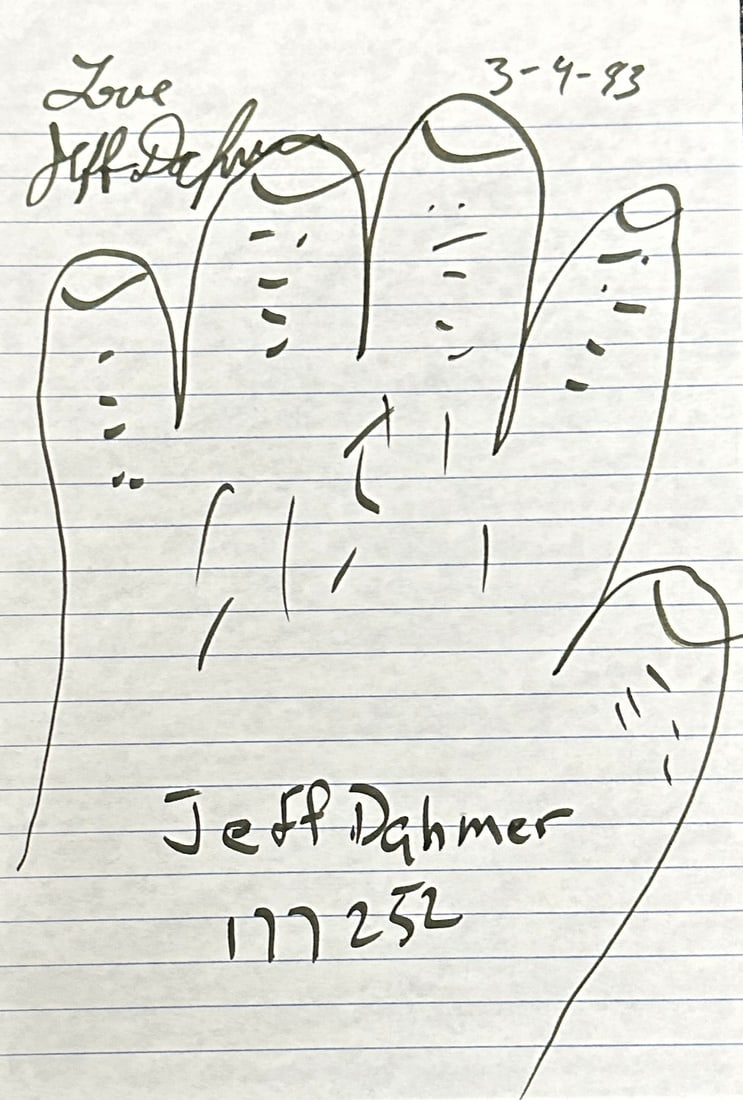 Love
3-4-93
Jeff Dahmer
Jeff Dahmer
177252